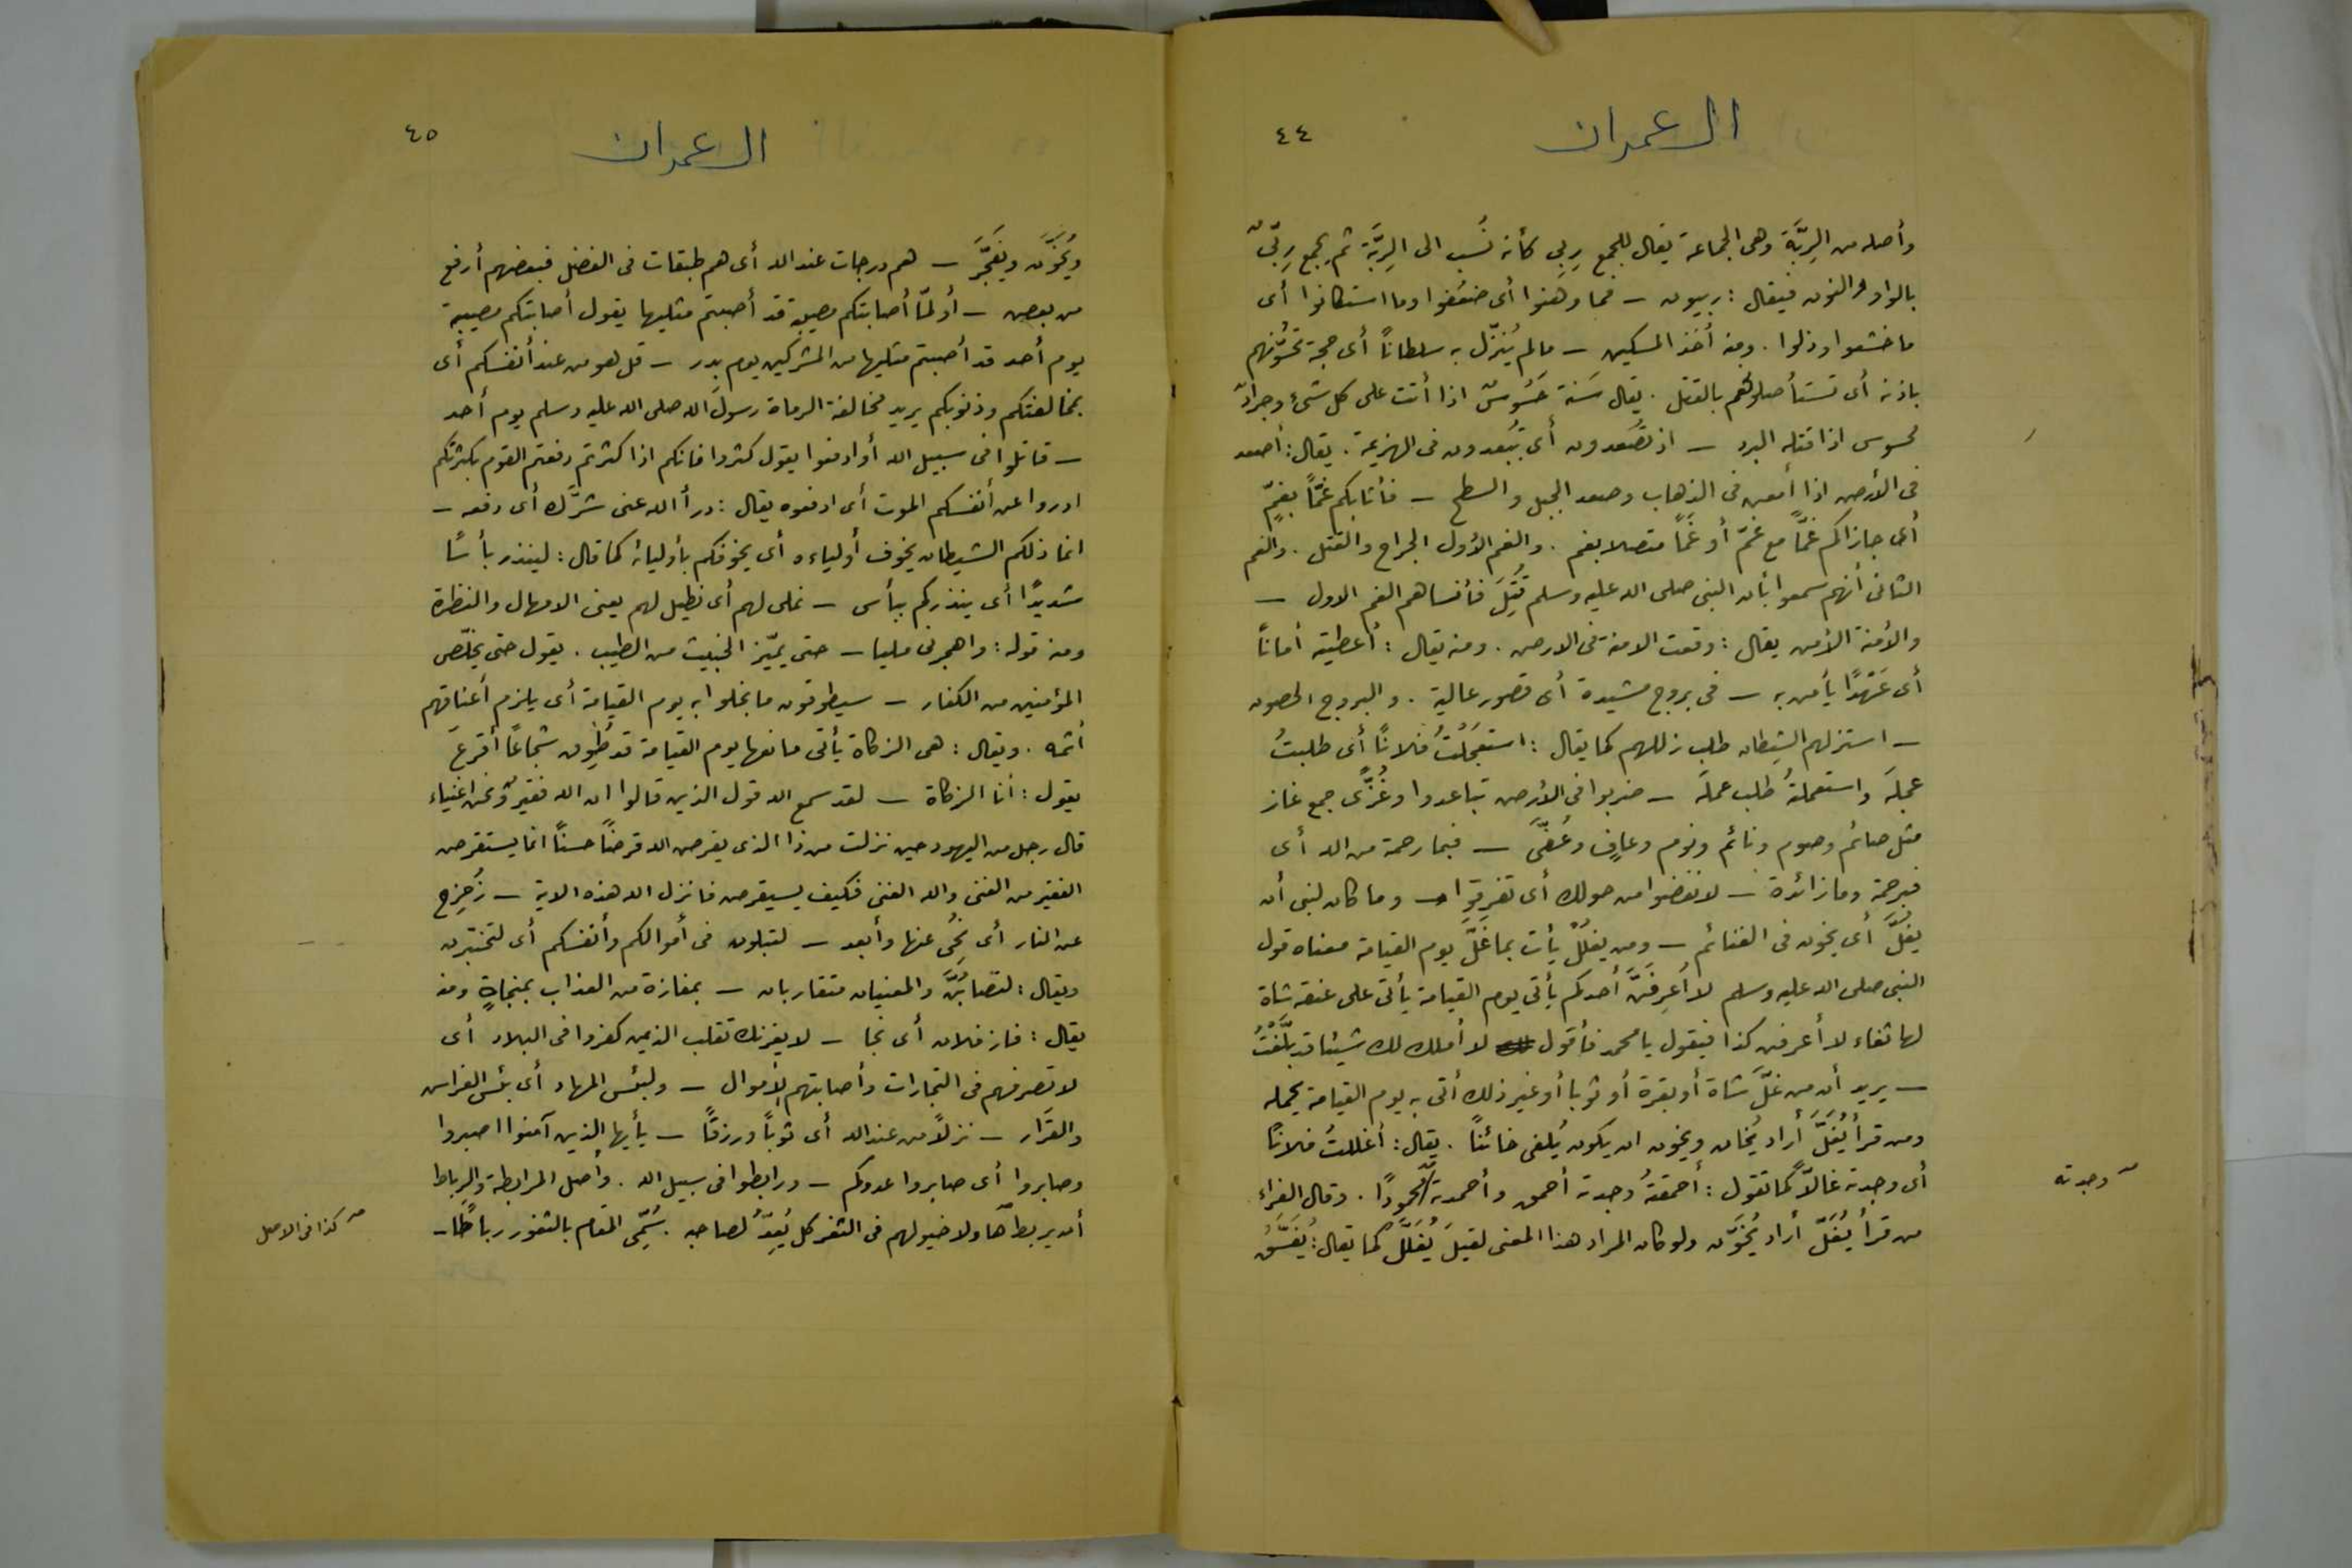 ال عمران
٤٤
وأصله من الرِبَّة وهى الجماعة يقال للجمع رِبى كأنه نُسب الى الرِبَّة ثم يجمع رِبّى
بالواو والنون فيقال : ربيون – فما وهنوا أى ضعُفوا وما استكانوا أى
ما خشعوا وذلوا . ومنه أُخذ المسكين – مالم يُنزّل به سلطاناً أى حجة تحسّونهم
باذنه أى تستأصلوهم بالقتل . يقال سَنة حَسُوسٌ اذا أتت على كل شىء وجرادٌ
محسوس اذا قتله البرد – اذ تصعدون أى تبعدون فى الهزيمة . يقال : أصعد
فى الأرض اذا أمعن فى الذهاب وصعد الجبل والسطح – فأثابكم غمّاً بغمٍّ
أى جازاكم غمّاً مع غمّ أو غمّاً متصلا بغم . والغم الأول الجراح والقتل . والغم
الثانى أنهم سمعوا بأن النبى صلى الله عليه وسلم قُتِلَ فأنساهم الغم الاول –
والأمنة الأمن يقال : وقعت الامنة فى الارض . ومنه يقال : أعطيته أماناً
أى عَهْدًا يأمن به – فى بروج مشيدة أى قصور عالية . والبروج الحصون
– استزلهم الشيطان طلب زللهم كما يقال : استعجَلْتُ فلاناً أى طلبتُ
عجلهَ واستعملتهُ طلب عملهَ – ضربوا فى الأرض تباعدوا وغُزًّى جمع غاز
مثل صائم وصوم ونائم ونوم وعافٍ وعُفّى – فبما رحمة من الله أى
فبرحمة وما زائدة – لانفضوا من حولك أى تفرقوا – وما كان لنبى أن
يغُلَّ أى يخون فى الغنائم – ومن يغلُلْ يأت بما غَلَّ يوم القيامة معناه قول
النبى صلى الله عليه وسلم لا أعرِفَنَّ أحدكم يأتى يوم القيامة يأتى على عنقه شاة
لها ثغاء لا أعرفن كذا فيقول يا محمد فأقول لا أملك لك شيئا قد بلَّغْتُ
– يريد أن من غلَّ شاة أو بقرة أو ثوبا أو غير ذلك أتى به يوم القيامة يحمله
ومن قرأ يُغَلَّ أراد يُخان ويجوز ان يكون يُلفى خائناً . يقال : أغللتُ فلانًا
أى وجدته غالاًّ كما تقول : أحمقتهُ وجدته أحمق وأحمدته محمودًا . وقال الفراء
من قرأ يُغَلَّ أراد يُخوَّن ولو كان المراد هذا المعنى لقيلَ يُغَلَّل كما يقال : يُفَسَّقُ
وجدته
ال عمران
٤٥
ويُخوَّن ويُفَجَّرَ – هم درجات عند الله أى هم طبقات فى الفضل فبعضهم أرفع
من بعض – أولمّا أصابتكم مصيبة قد أصبتم مثليها يقول أصابتكم مصيبة
يوم أحد قد أصبتم مثليها من المشركين يوم بدر – قل هو من عند أنفسكم أى
بمخالفتكم وذنوبكم يريد مخالفة الرماة رسولَ الله صلى الله عليه وسلم يوم أحد
– قاتلوا فى سبيل الله أو ادفعوا يقول كثروا فانكم اذا كثرتم دفعتم القوم بكثرتكم
ادروا عن أنفسكم الموت أى ادفعوه يقال : درأ الله عنى شرَّك أى دفعه –
انما ذلكم الشيطان يخوف أولياءه أى يخوفكم بأوليائه كما قال : لينذر بأسًا
شديدًا أى ينذركم ببأس – نملى لهم أى نطيل لهم يعنى الامهال والنظرة
ومنه قوله : واهجرنى مليا – حتى يميّز الخبيث من الطيب . يقول حتى يخلّص
المؤمنين من الكفار – سيطوقون ما بخلوا به يوم القيامة أى يلزم أعناقهم
أثمه . ويقال : هى الزكاة يأتى مانعها يوم القيامة قد طُوِّق شجاعًا أقرعَ
يقول : أنا الزكاة – لقد سمع الله قول الذين قالوا ان الله فقيرٌ ونحن اغنياء
قال رجل من اليهود حين نزلت من ذا الذى يقرض الله قرضاً حسناً انما يستقرض
الفقير من الغنى والله الغنى فكيف يستقرض فانزل الله هذه الاية – زُحزِح
عن النار أى نُحّى عنها وأبعد – لتبلون فى أموالكم وأنفسكم أى لتختبرن
ويقال : لتصابُنَّ والمعنيان متقاربان – بمفازة من العذاب بمنجاةٍ ومنه
يقال : فاز فلان أى نجا – لا يغرنك تقلب الذين كفروا فى البلاد أى
لا تصرفهم فى التجارات وأصابتهم الأموال – ولبئس المهاد أى بئس الفراش
والقرَار – نزلاً من عند الله أى ثوباً ورزقاً – يأيها الذين آمنوا اصبروا
وصابروا أى صابروا عدوكم – ورابطوا فى سبيل الله . وأصل المرابطة والرباط
أن يربط هاولا خيولهم فى الثغر كل يُعِدُّ لصاحبه . سُمِّى المقام بالثغور رباطًا –
كذا فى الاصل